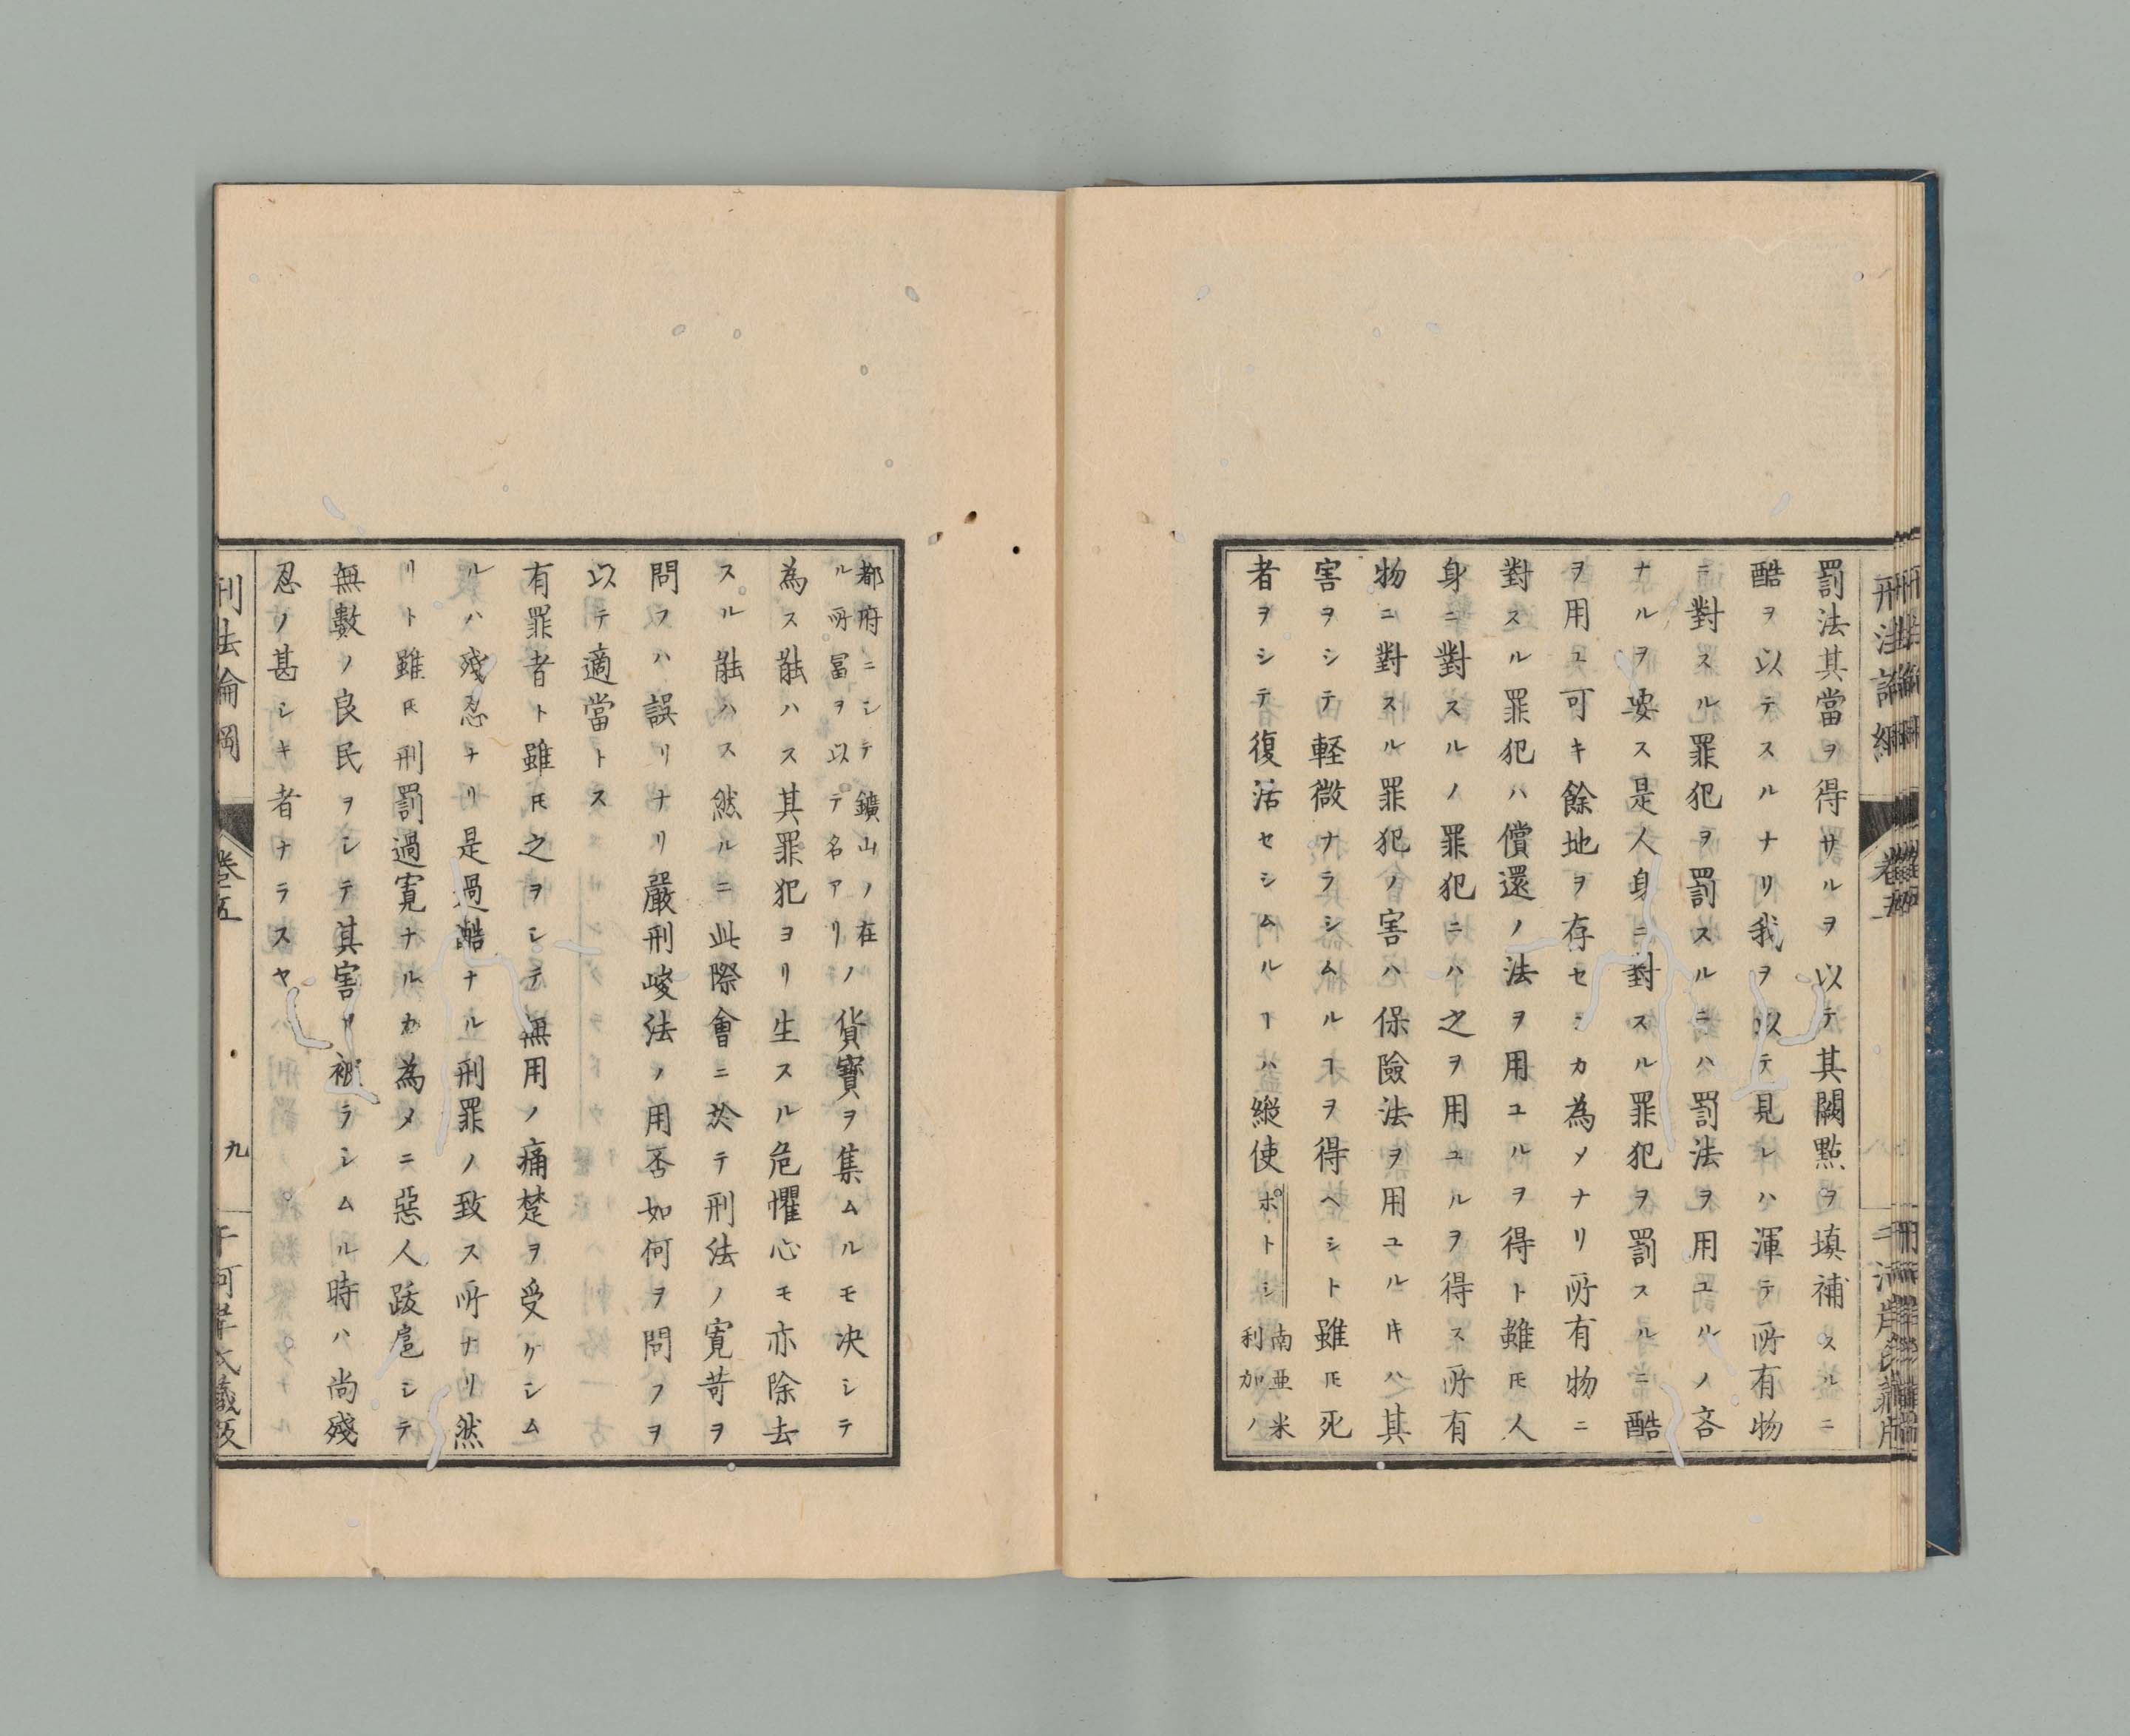 罰法其當ヲ得サルヲ以テ其闕點ヲ塡補スルニ
酷ヲ以テスルナリ我ヲ以テ見レハ渾テ所有物
ニ對スル罪犯ヲ罰スルニハ罰法ヲ用ユルノ吝
ナルヲ要ス是人身ニ對スル罪犯ヲ罰スルニ酷
ヲ用ユ可キ餘地ヲ存セシカ為メナリ所有物ニ
對スル罪犯ハ償還ノ法ヲ用ユルヲ得ト雖𪜈人
身ニ對スルノ罪犯ニハ之ヲ用ユルヲ得ス所有
物ニ對スル罪犯ノ害ハ保險法ヲ用ユルㇳキハ其
害ヲシテ軽微ナラシムルヿヲ得ヘシト雖𪜈死
者ヲシテ復活セシムルヿハ縱使ポトシ南亜米利加ハ
都府ニシテ鑛山ノ在ル所冨ヲ以テ名アリノ貨寳ヲ集ムルモ决シテ
為ス能ハス其罪犯ヨリ生スル危懼心モ亦除去
スル能ハス然ルニ此際會ニ於テ刑法ノ寛苛ヲ
問フハ誤リナリ嚴刑峻法ノ用否如何ヲ問フヲ
以テ適當トス
有罪者ト雖𪜈之ヲシテ無用ノ痛楚ヲ受ケシム
ルハ殘忍ナリ是過酷ナル刑罪ノ致ス所ナリ然
リト雖𪜈刑罰過寛ナルカ為メニ惡人跋扈シテ
無數ノ良民ヲシテ其害ヲ被ラシムル時ハ尚殘
忍ノ甚シキ者ナラスヤ
刑法論綱 卷五 九